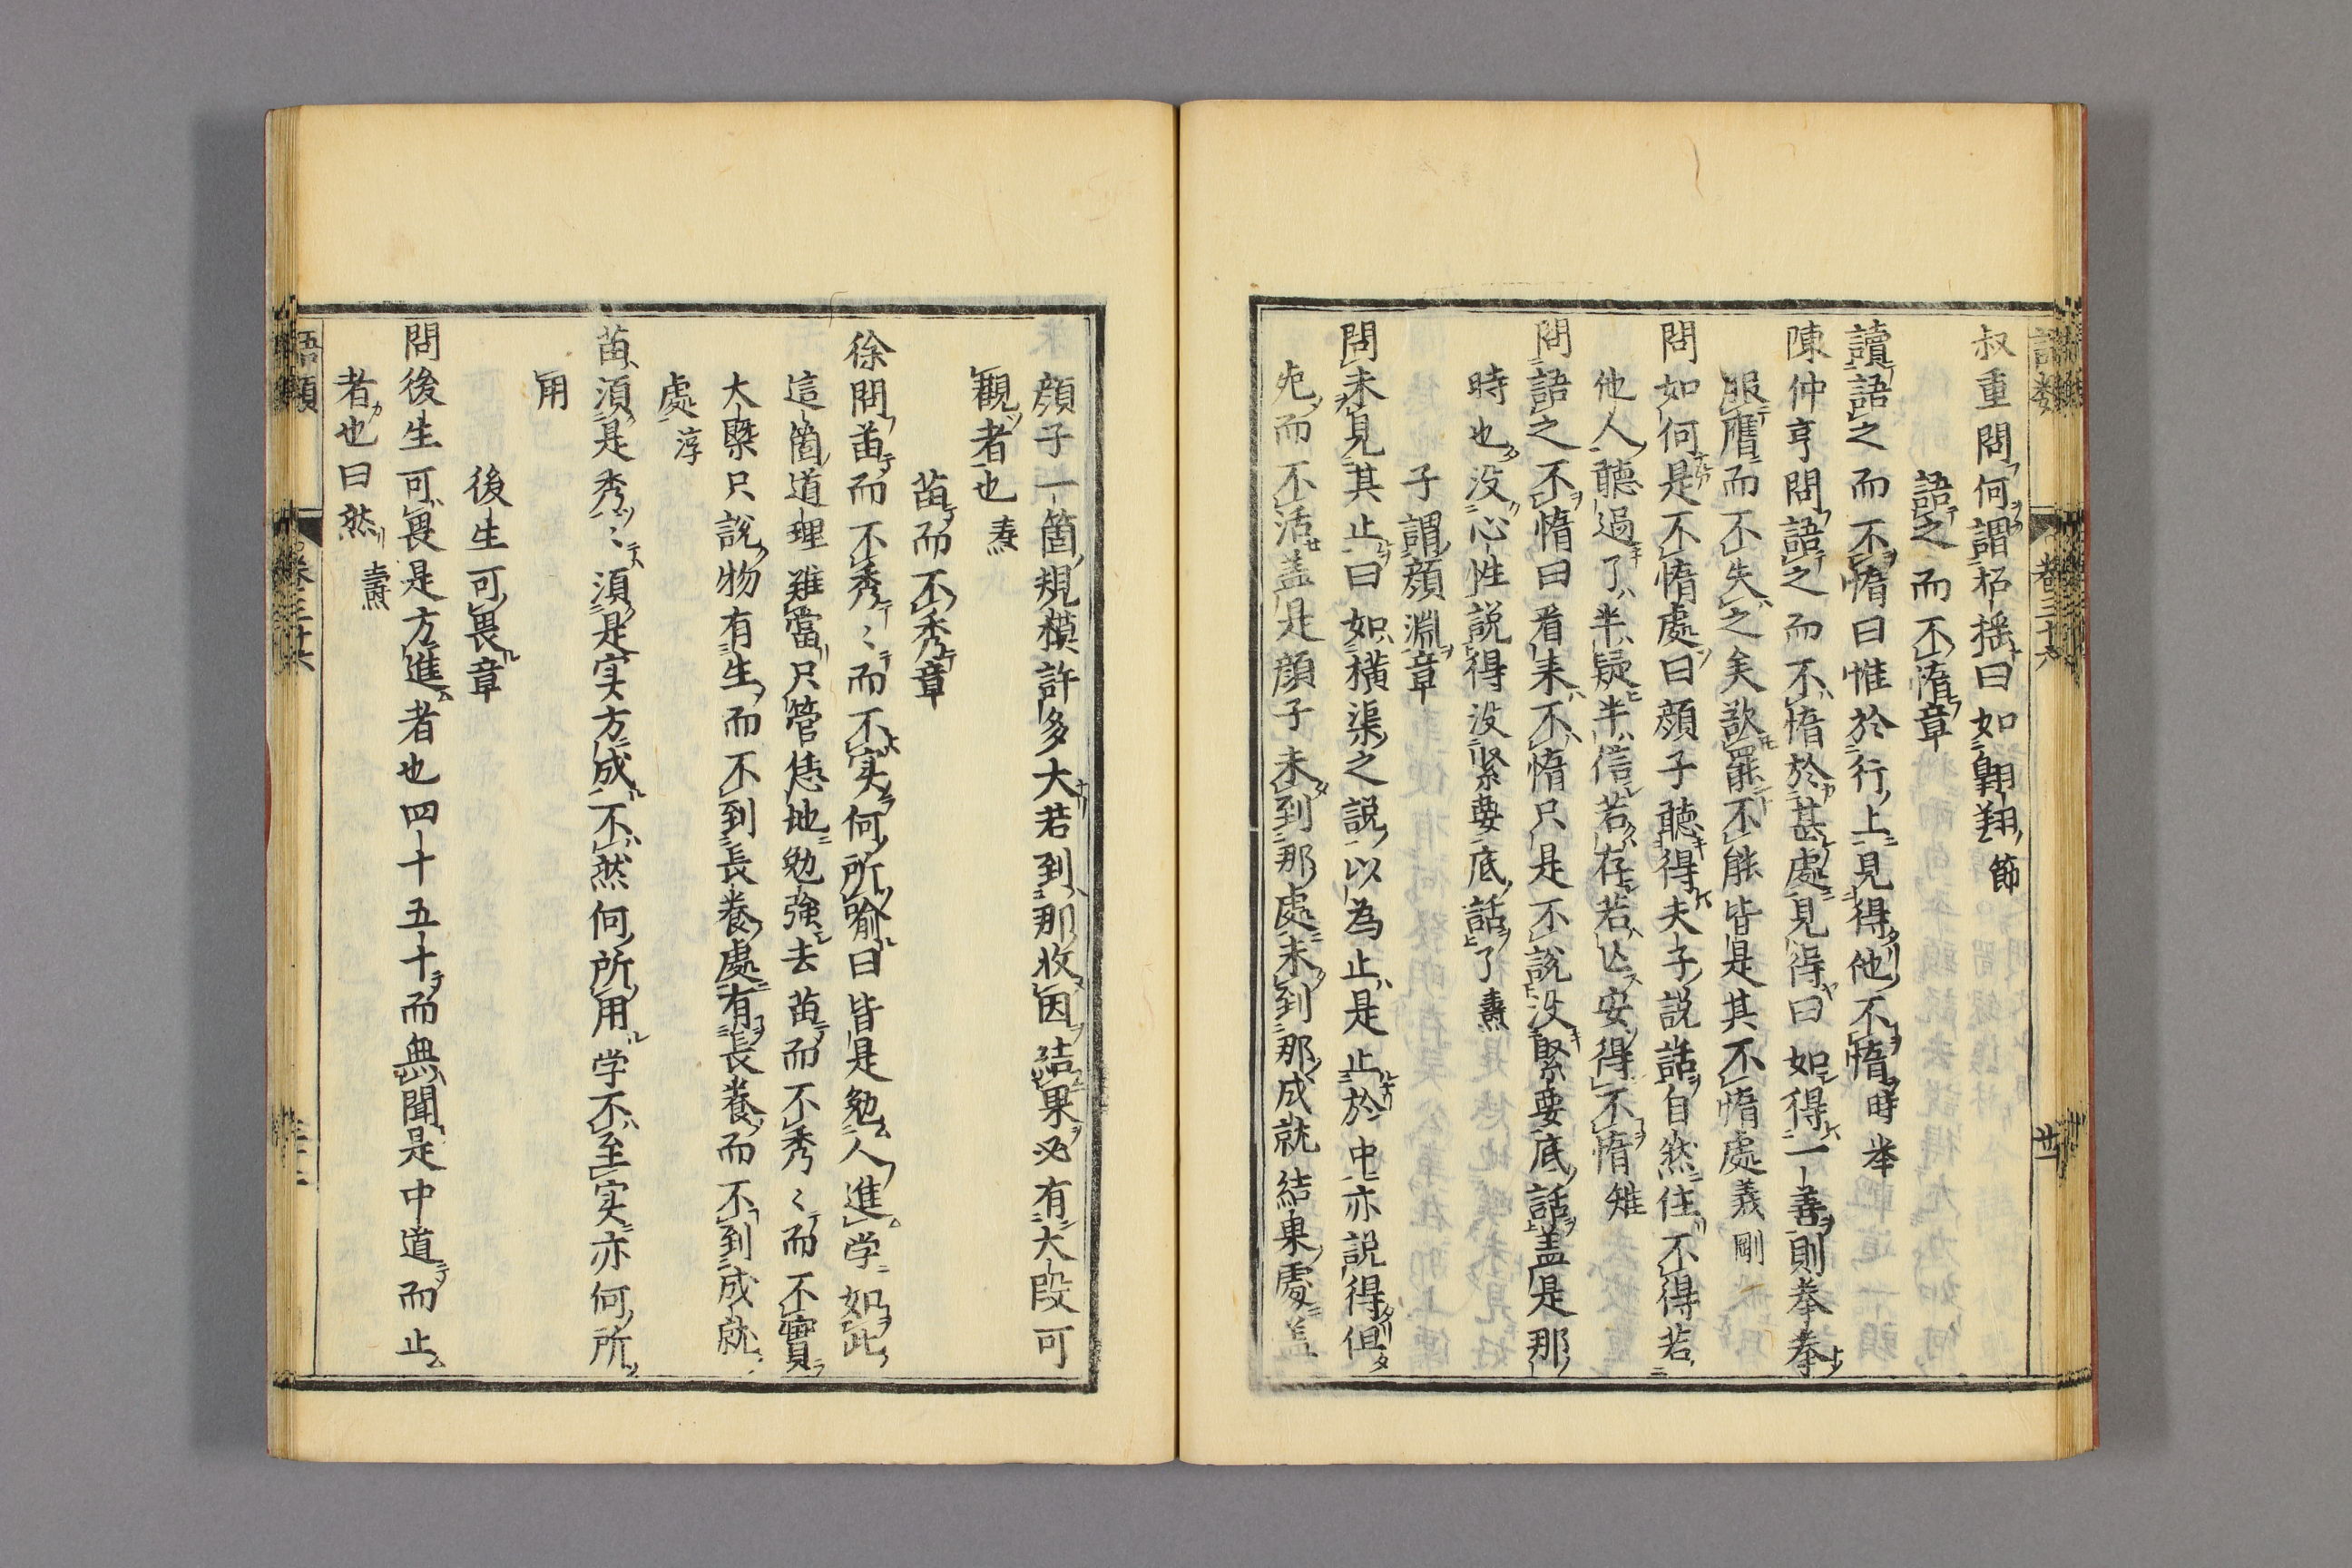 叔重問何謂招搖曰如翺翔節
語之而不惰章
讀語之而不惰曰惟於行上見得他不惰時举
陳仲亨問語之而不惰於甚處見得曰如得一善則拳拳
服膺而不失之矣欲罷不能皆是其不惰處義剛
問如何是不惰處曰顔子聽得夫子説話自然住不得若
他人聽過了半疑半信若存若亡安得不惰雉
問語之不惰曰看来不惰只是不說没緊要底話盖是那
時也没心性説得没緊要底話了燾
子謂顔淵章
問未見其止曰如橫渠之説以為止是止於中亦説得但
死而不活盖是顔子未到那處未到那成就結果處盖
顔子一箇規模許多大若到那收因結果必有大段可
觀者也燾
苗而不秀章
徐問苗而不秀〻而不实何所喻曰皆是勉人進学如此
這箇道理難當只管恁地勉強去苗而不秀〻而不實
大槩只説物有生而不到長養處有長養而不到成就
處淳
苗須是秀〻須是实方成不然何所用学不至实亦何所
用
後生可畏章
問後生可畏是方進者也四十五十而無聞是中道而止
者也曰然燾
語類
卷三十六